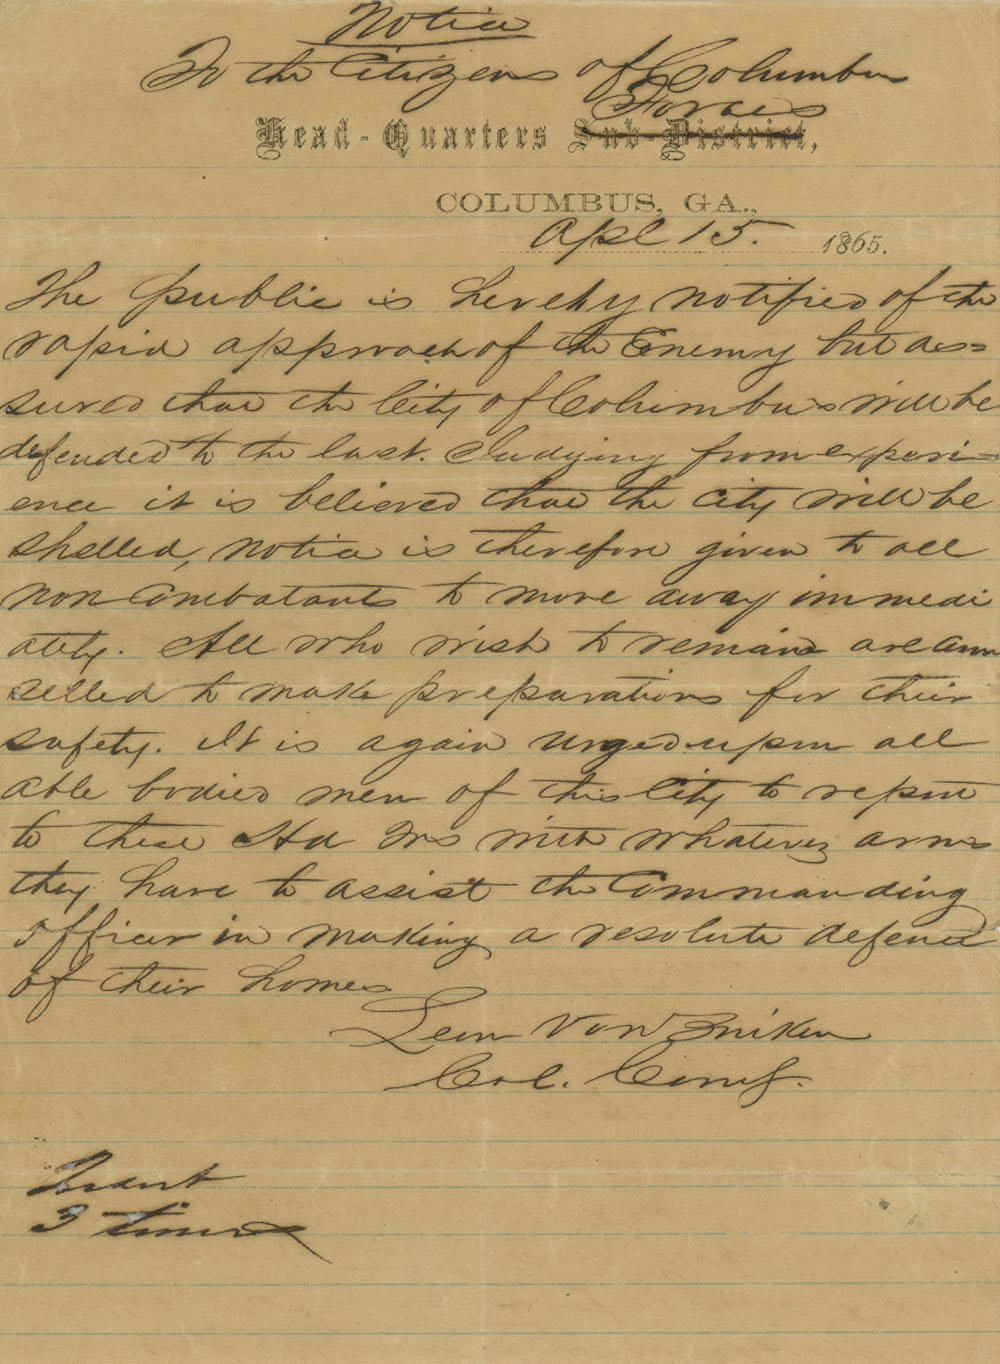 Notice
To the Citizens of Columbus
Forces
Head-Quarters Sub-District,
COLUMBUS, GA.,
Apl 15. 1865.
The public is hereby notified of the
rapid approach of the Enemy but as=
sured that the City of Columbus will be
defended to the last. Judging from experi=
ence it is believed that the city will be
shelled, notice is therefore given to all
non combatants to move away immedi
ately. All who wish to remain are coun
selled to make preparations for their
safety. It is again urged upon all
able bodied men of this City to report
to these Hd Qrs with whatever arms
they have to assist the Commanding
officer in making a resolute defence
of their homes
Leon Von Zinken
Col. Comg.
Insert
3 times